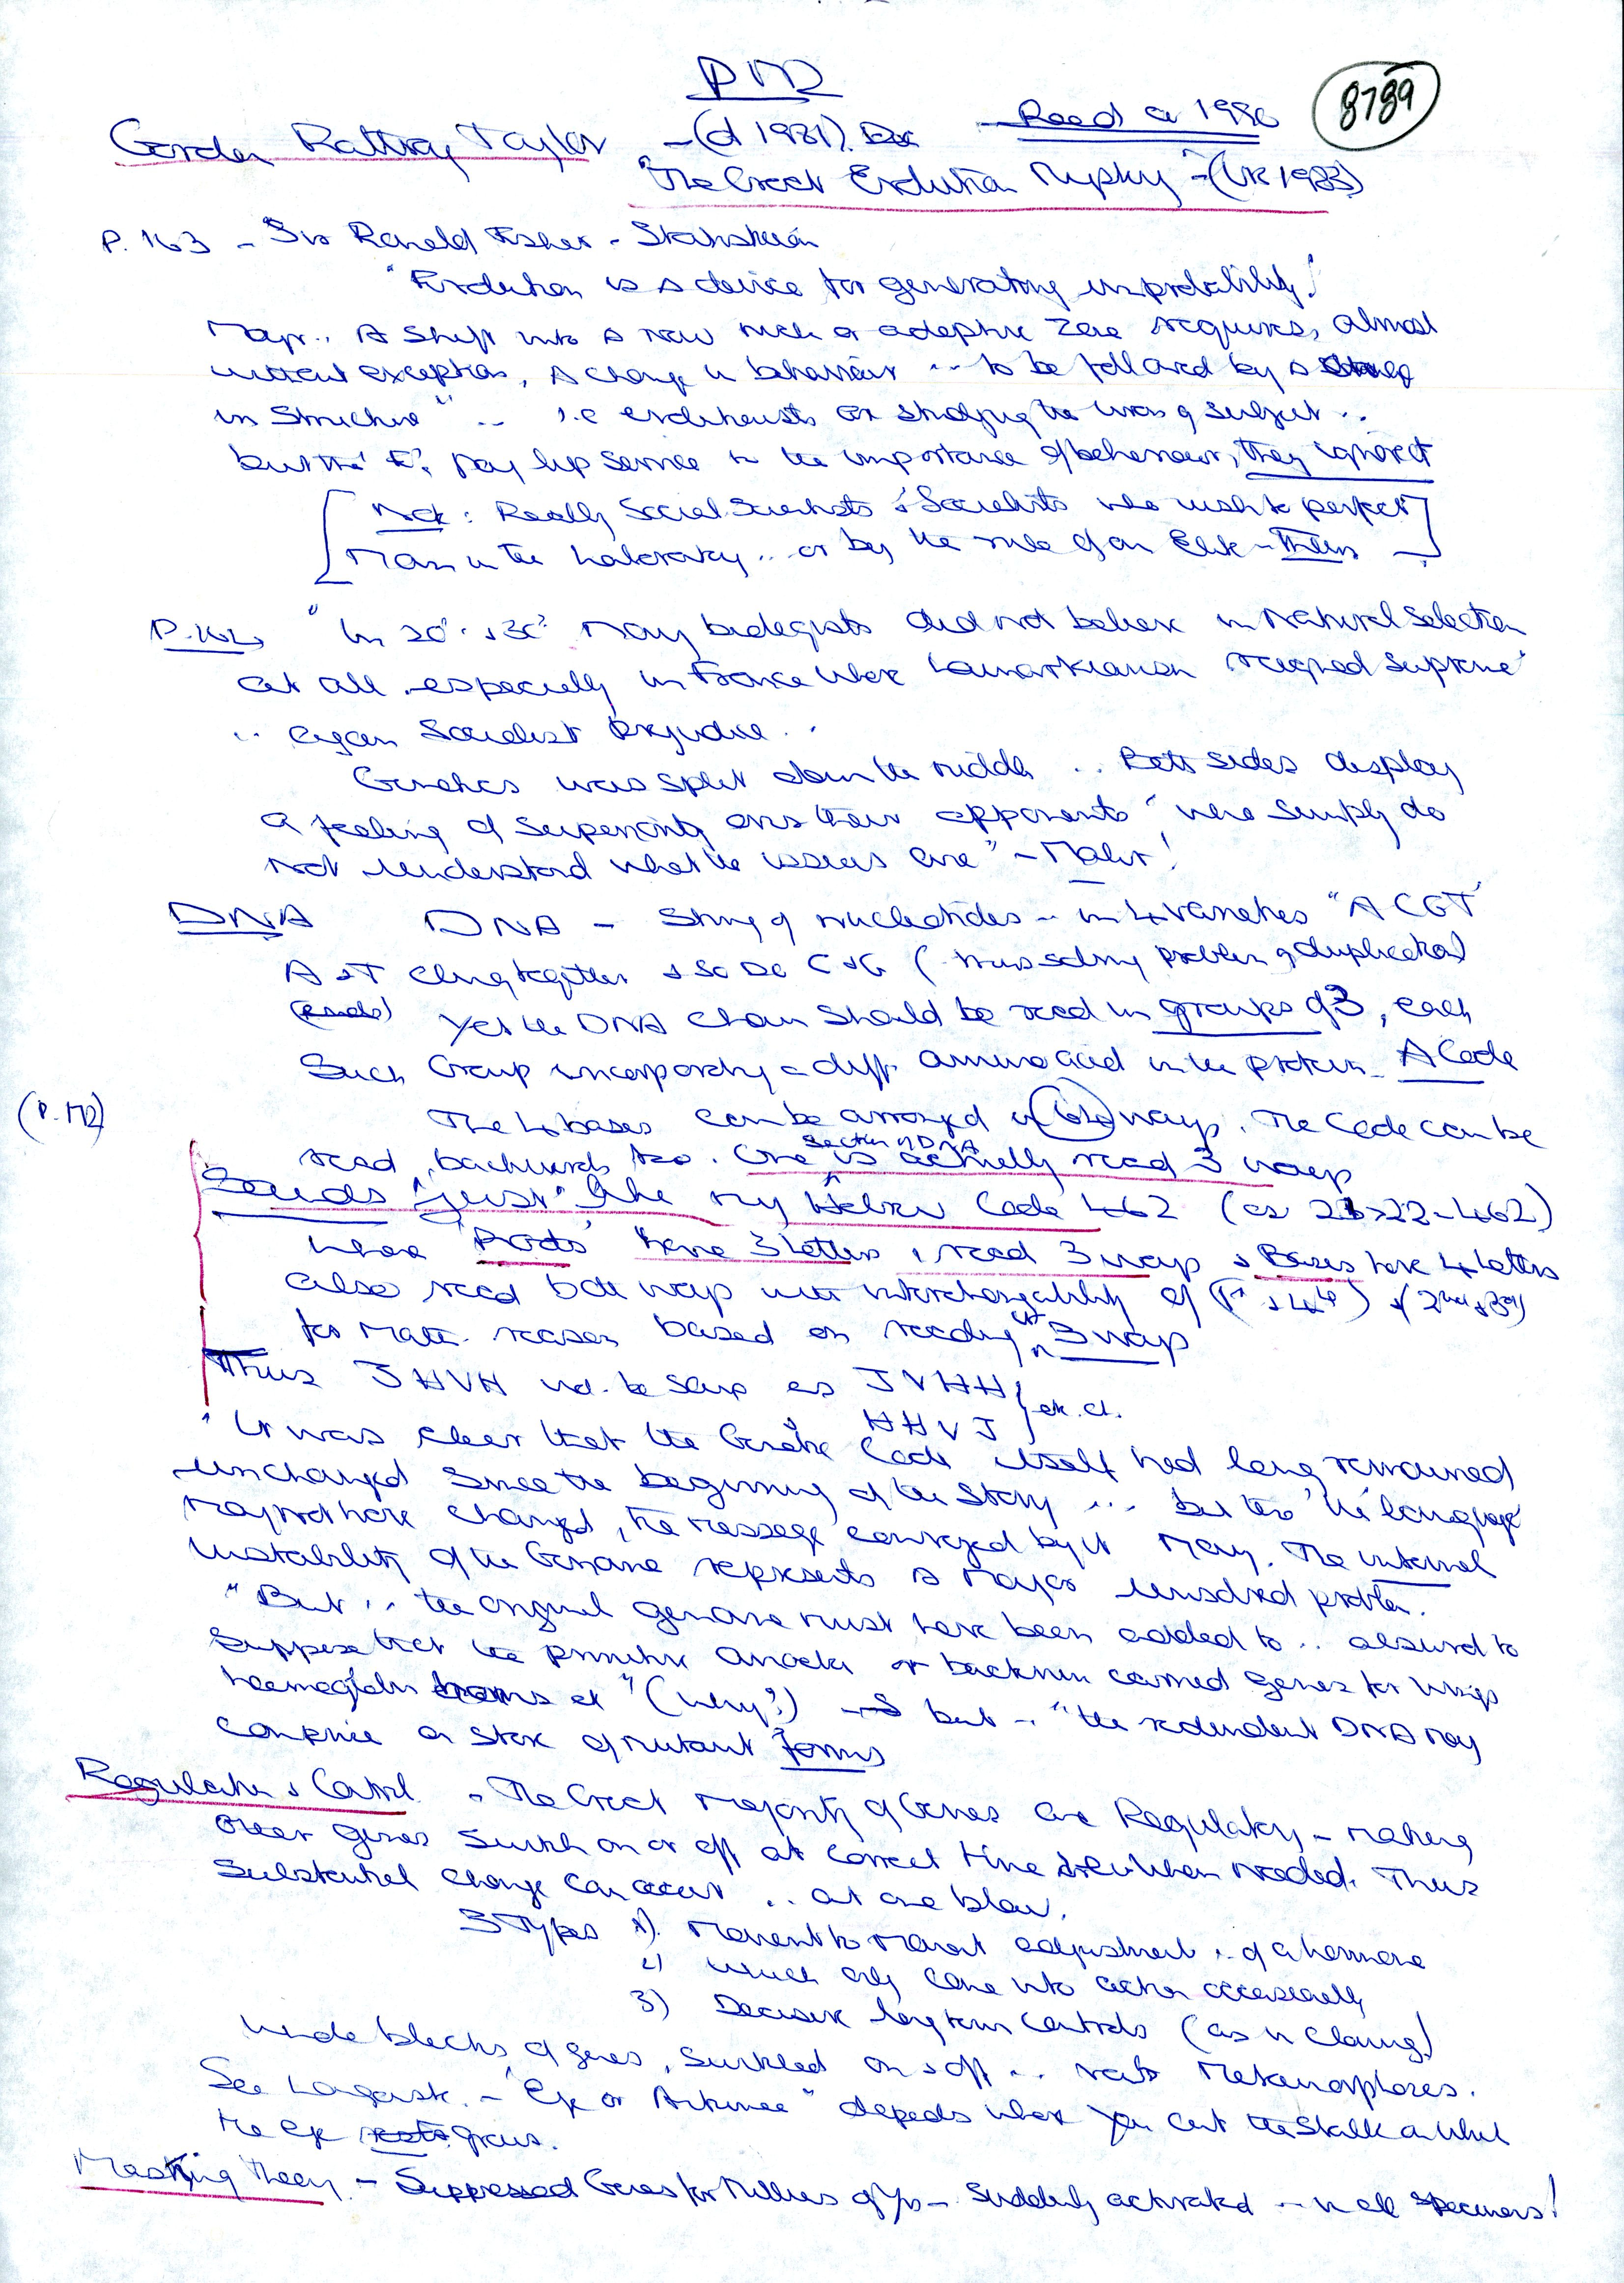 PM2
8789
Gordon Rattray Taylor - (d 1981). Read a 1986
"The Great Evolution Mystery" - (UK 1983)
P. 163 - Sir Ronald Fisher - Statistician
"Evolution is a device for generating improbability!"
Mayr.. A Shift into a new niche or adaptive zone requires, almost
without exception, a change in behaviour ... to be followed by a change
in Structure" .. i.e evolutionists are studying the wrong subject ..
but tho' they pay lip service to the importance of behaviour, they ignore it
[Note: Really Social Scientists & Socialists who wish to perfect
Man in the Laboratory .. or by the rule of an Elite - Them]
"In 20's & 30's Many biologists did not believe in Natural Selection
at all especially in France where Lamarkianism reigned Supreme"
.. again Socialist Prejudice ..
Genetics was split down the middle .. Both sides display
a feeling of superiority over their opponents "who simply do
not understand what the issues are" - Mahr!
DNA DNA - String of nucleotides - in 4 varieties "ACGT"
A & T cling together & so do C & G (thus solving problem of duplication)
yet the DNA chain should be read in groups of 3, each
Such Group incorporating a diff. amino acid in the protein - A Code
(P. 172) The 4 bases can be arranged in 64 ways. The Code can be
read backwards too. One section of DNA is actually read 3 ways
Sounds "just" like my Hebrew Code 462 (as 21x22=462)
where 'Roots' have 3 letters & read 3 ways & Bases have 4 letters
also read both ways with interchangability of (1st & 4th) & (2nd & 3rd)
for Math. reasons based on reading it 3 ways
Thus JHVH wd. be same as JVHH
HHVJ } etc. etc.
"It was clear that the Genetic Code itself had long remained
unchanged since the beginning of the Story ... but tho' the 'language'
may not have changed, the message conveyed by it may. The internal
instability of the Genome represents a major unsolved problem.
"But .. the original genome must have been added to .. absurd to
suppose that the primitive amoeba or bacterium carried genes for wings
haemoglobin et "(why?) but - "the redundant DNA may
comprise a store of mutant forms
Regulation & Control - The Great Majority of Genes are Regulatory - making
other genes switch on or off at correct time when needed. Thus
Substantial change can occur .. at one blow.
3 Types 1). Moment to Moment adjustment .. of a hormone
2) which only come into action occasionally
3) Decisive long term Controls (as in Cloning)
Whole blocks of genes, switched on & off ... Metamorphoses.
See - "Eye or Antennae" depends where you cut the stalk on which
the eye grows.
Masking Theory - Suppressed Genes for Millions of Yrs - Suddenly activated - in all specimens!